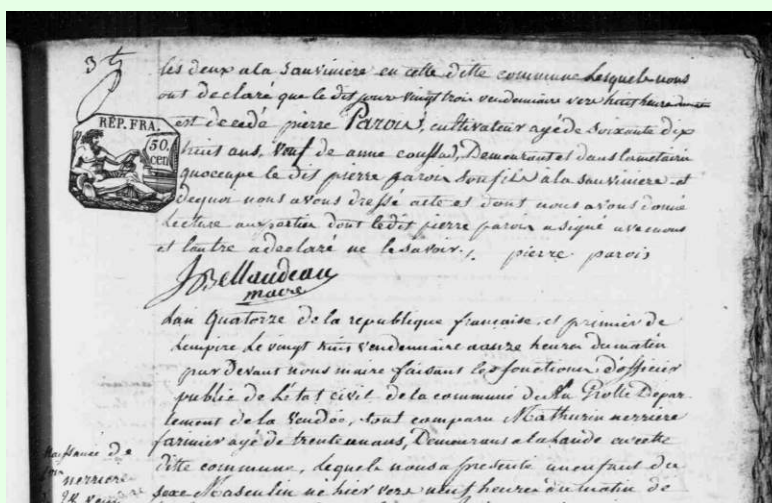 3
les deux a la Sauviniere en cette ditte commune lesquels nous
ont declaré que le dit jour vingt trois vendemiaire vers huit heure
est decedé pierre Parois, cultivateur agé de Soixante dix
huit ans, veuf de anne, Demeurant et dans la metairie
qu'occupe le dit pierre parois son fils à la Sauviniere et
dequoi nous avons dressé acte et dont nous avons donné
Lecture aux parties dont ledit pierre parois a signé avec nous
et l'autre a declaré ne le savoir. pierre parois
REP. FRA.
50.
cen
JBellaudeau
maire
Lan Quatorze de la republique française, et premier de
Lempire Le vingt huit Vendemiaire a onze heures du matin
par Devant nous maire faisant les fonctions d'officier
public de Letat civil de la commune de La Grolle Depar-
tement de la Vendée, tout comparu Mathurin nerriere
farinier agé de trente un ans, Demeurant a la lande en cette
ditte commune, lequel nous a presenté un enfant du
sexe Masculin né hier vers neuf heures du matin de
Naissance de
nerriere